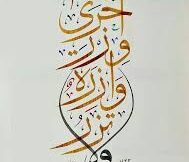 ولا
تزر
وازرة
وزر
أخرى